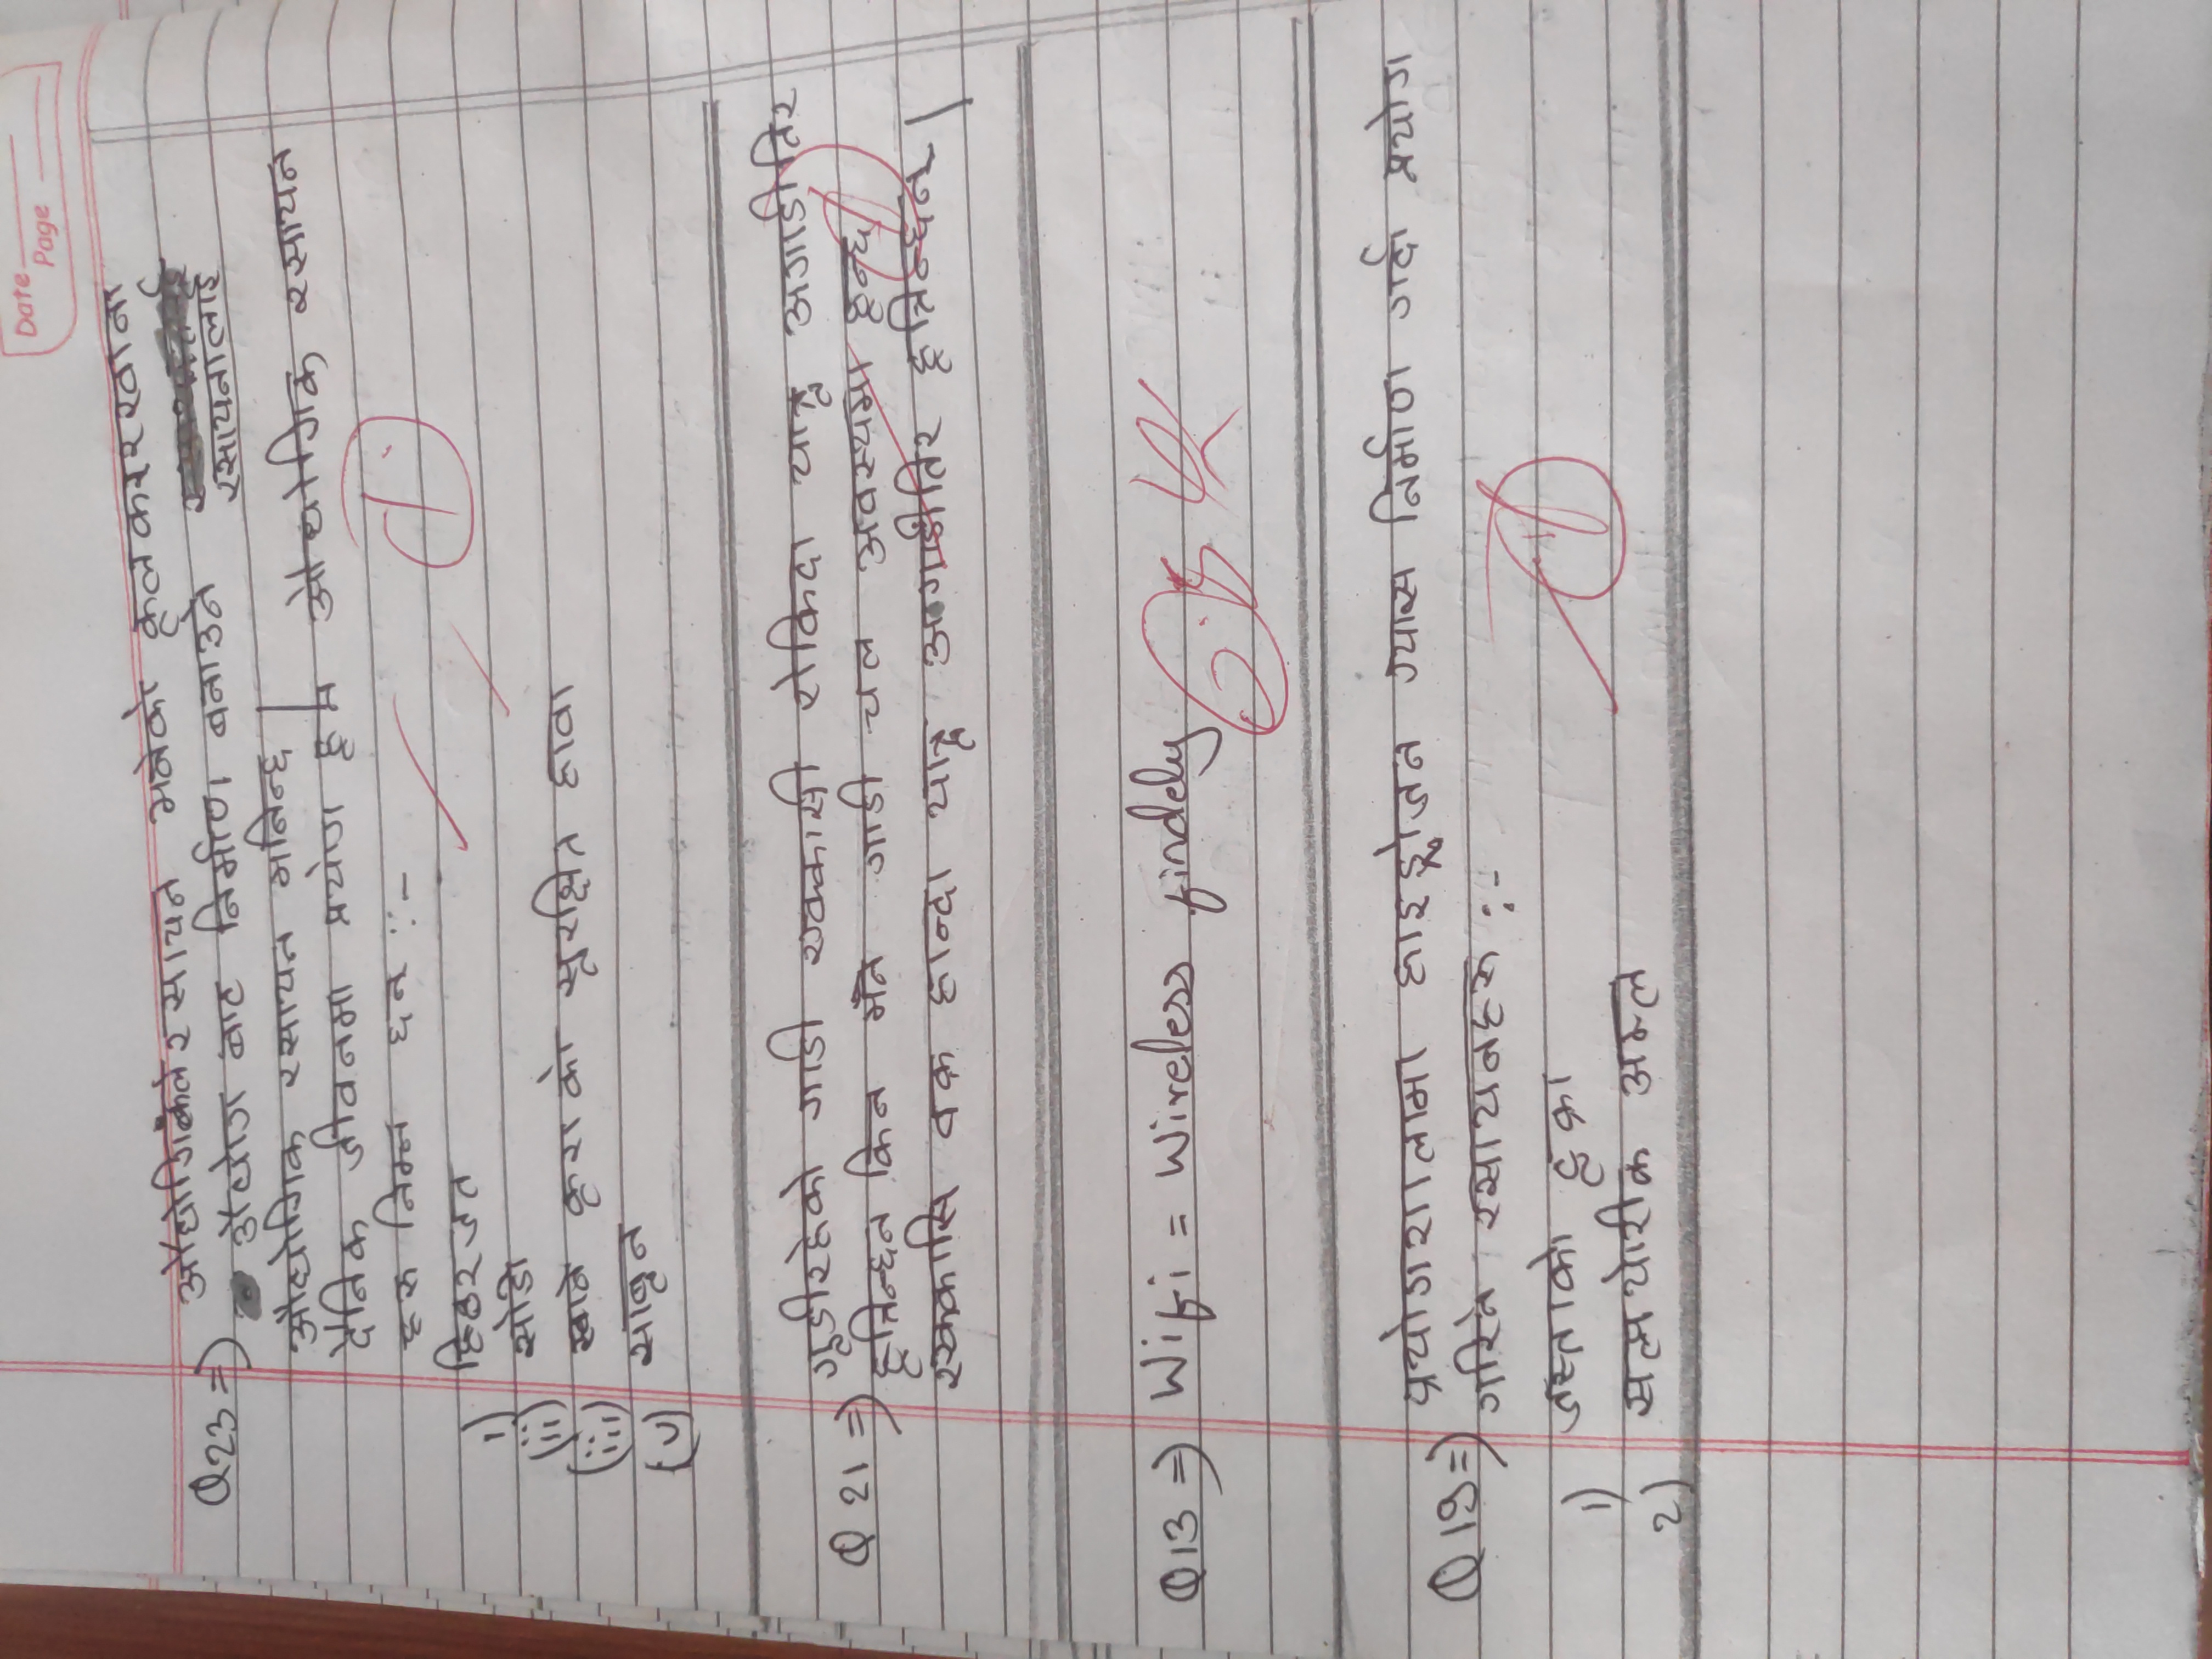 Date
Page
औद्योगिकले रसायन भनेको कृलकाररखाना
Q23 => औद्योग बाट निर्माण बनाउने रसायनालाई
औद्योगिक रसायन भनिन्छ |
दैनिक जीवनमा प्रयोग हूने औद्योगिक रसायन
हरु निम्न छन् :-
i) डिटरजत
(ii) सोडा
(iii) खाने कृरा को सूरक्षित हावा
(v) साबून
गूडीरहेको गाडी एक्कासी रोकिदा यात्रू अगाडीतिर
Q 21 => हूत्तिन्छन किन भने गाडी चल अवस्थमा हून्छ
एक्कासि वक्र हान्दा यात्रू अगाडीतिर हूत्तिन्छन् |
Q13 => Wifi = Wireless findely
0.5
प्रयोगशालामा हाइड्रोजन ग्यास निर्माण गर्दा प्रयोग
Q 19 => गरिने रसायनहरु :-
1) जस्ताको टूक्रा
2) सल्फ्योरीक अम्ल